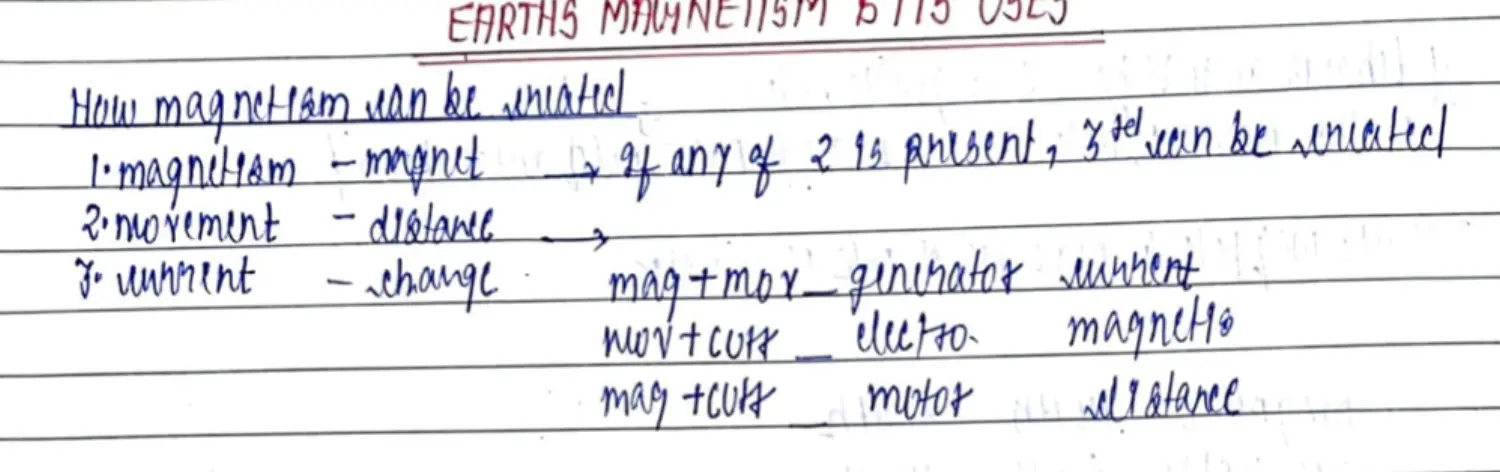 EARTHS MAGNETISM & ITS USES
How magnetism can be created
1. magnetism – magnet → If any of 2 is present, 3rd can be created
2. movement – distance →
3. current – change
mag + mov – generator current
mov + curr – electro. magnets
mag + curr – motor distance